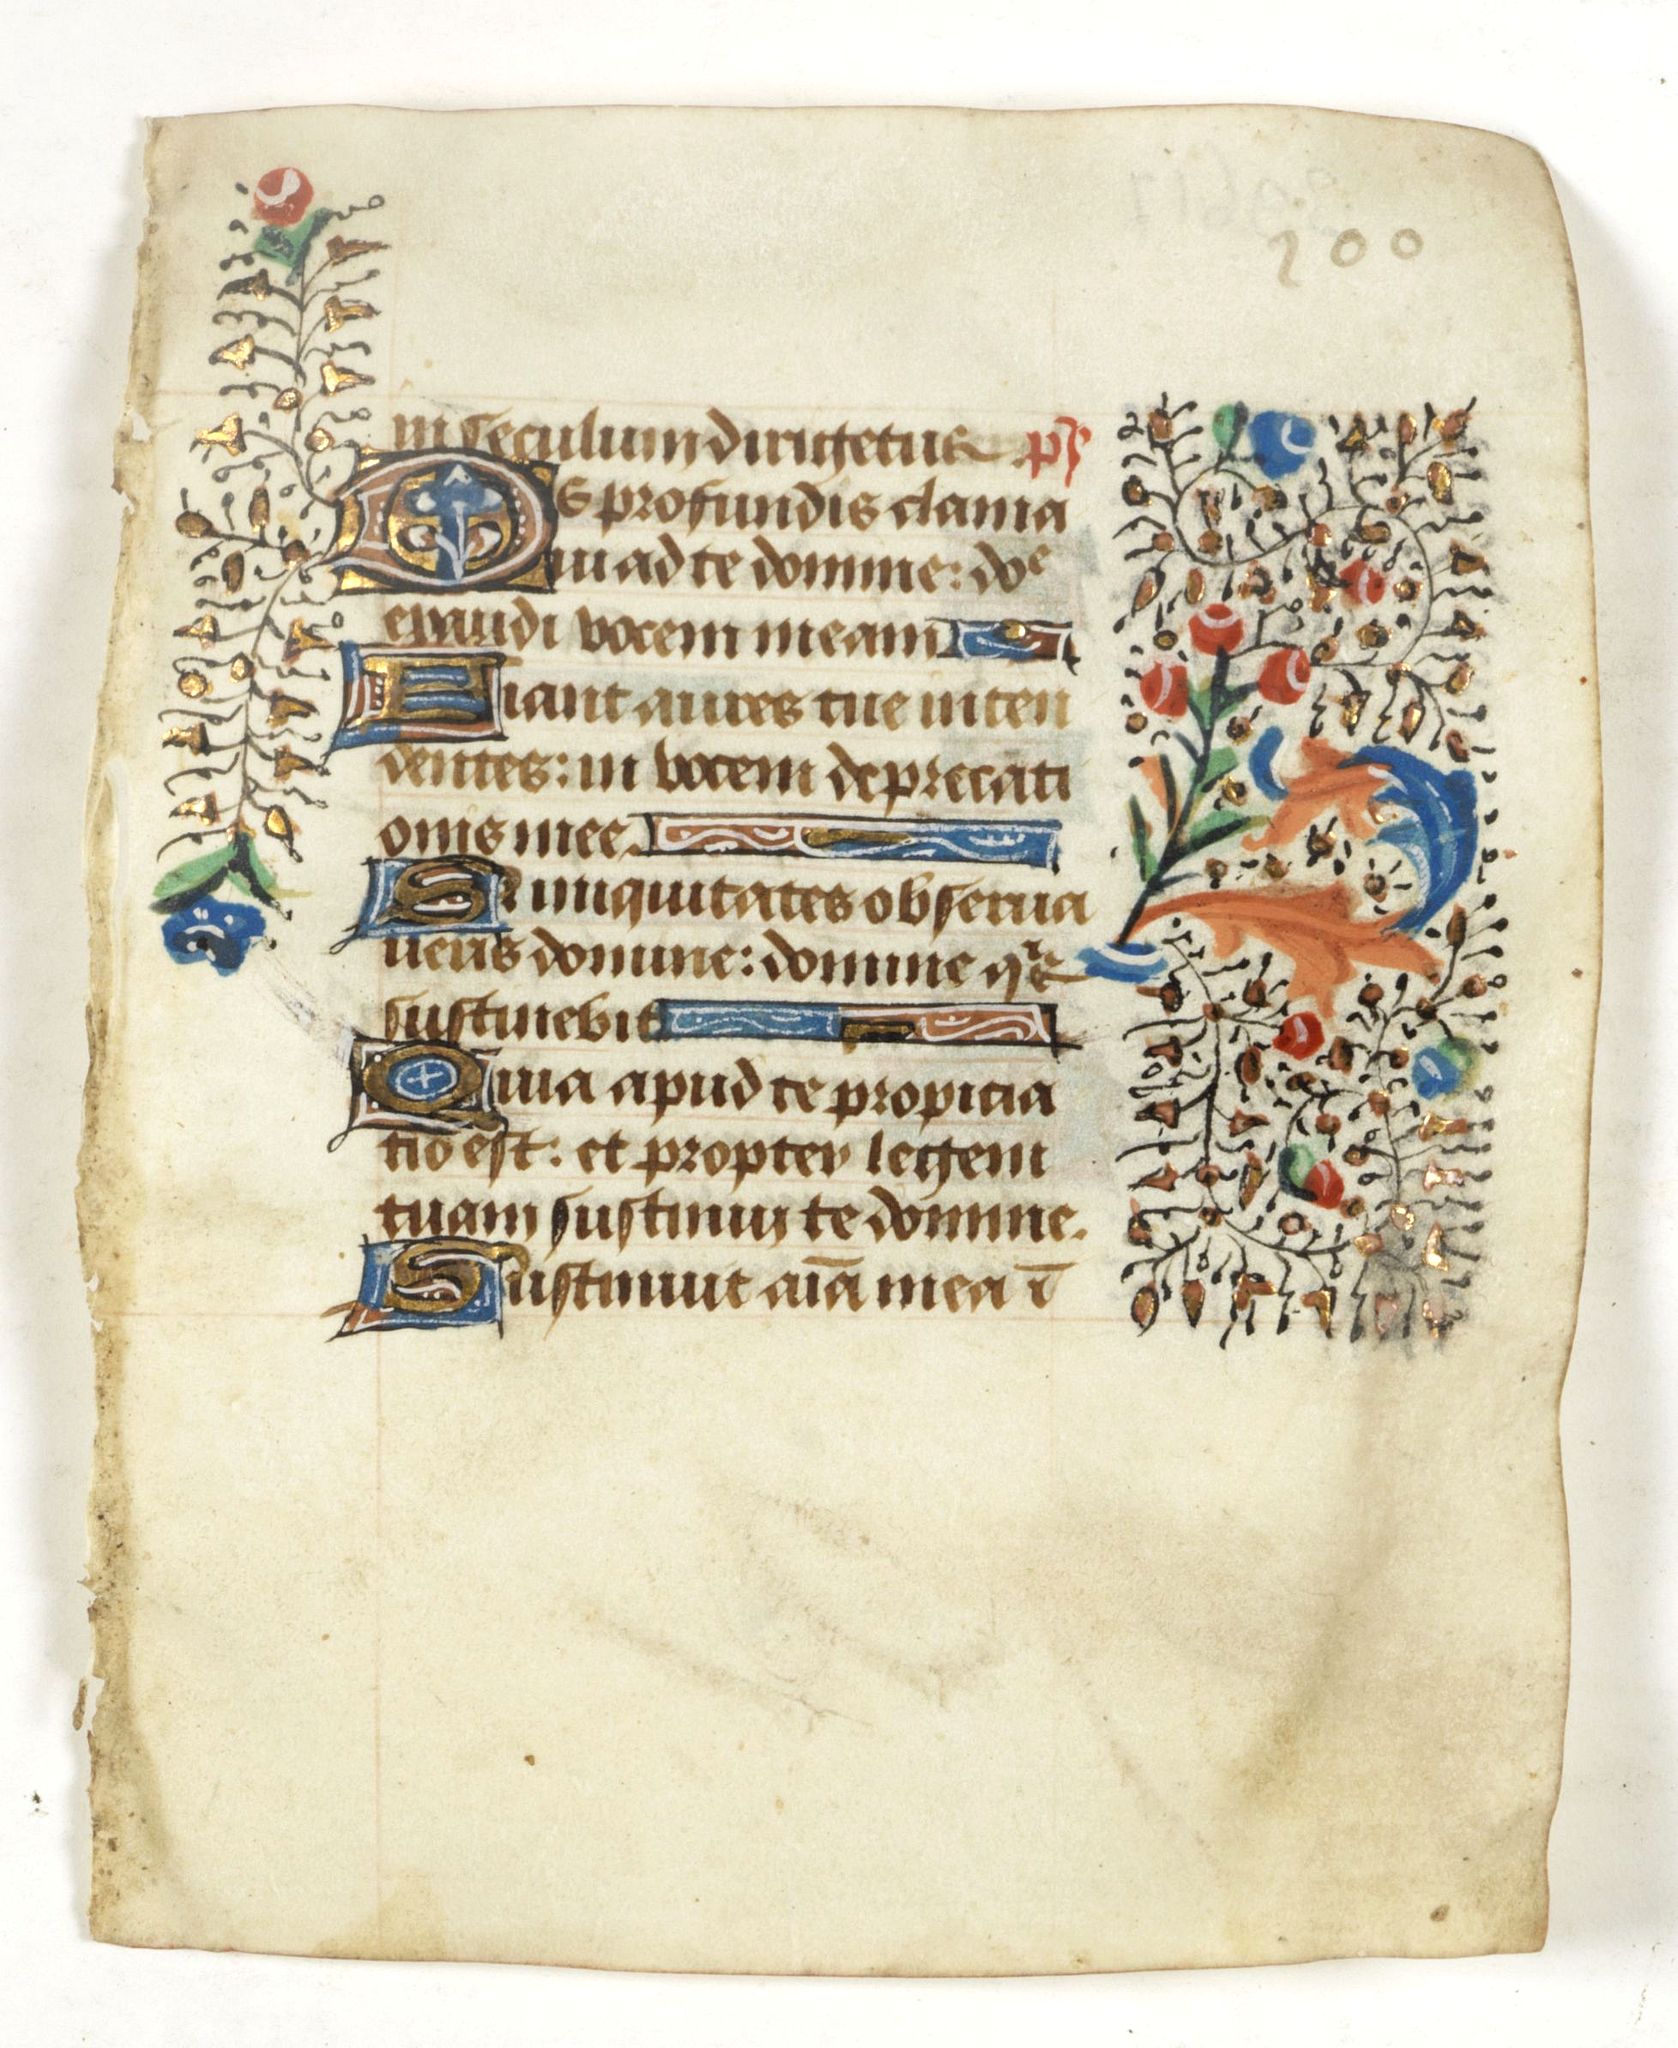 200
in seculum dirigetur ps
De profundis clama
ui ad te domine: doe
exaudi vocem meam
Fiant aures tue inten
dentes: in vocem deprecati
onis mee.
Si iniquitates obserua
ueris domine: domine qͥs
sustinebit
Quia apud te propicia
tio est: et propter legem
tuam sustinui te domine.
Sustinuit aīa mea ī